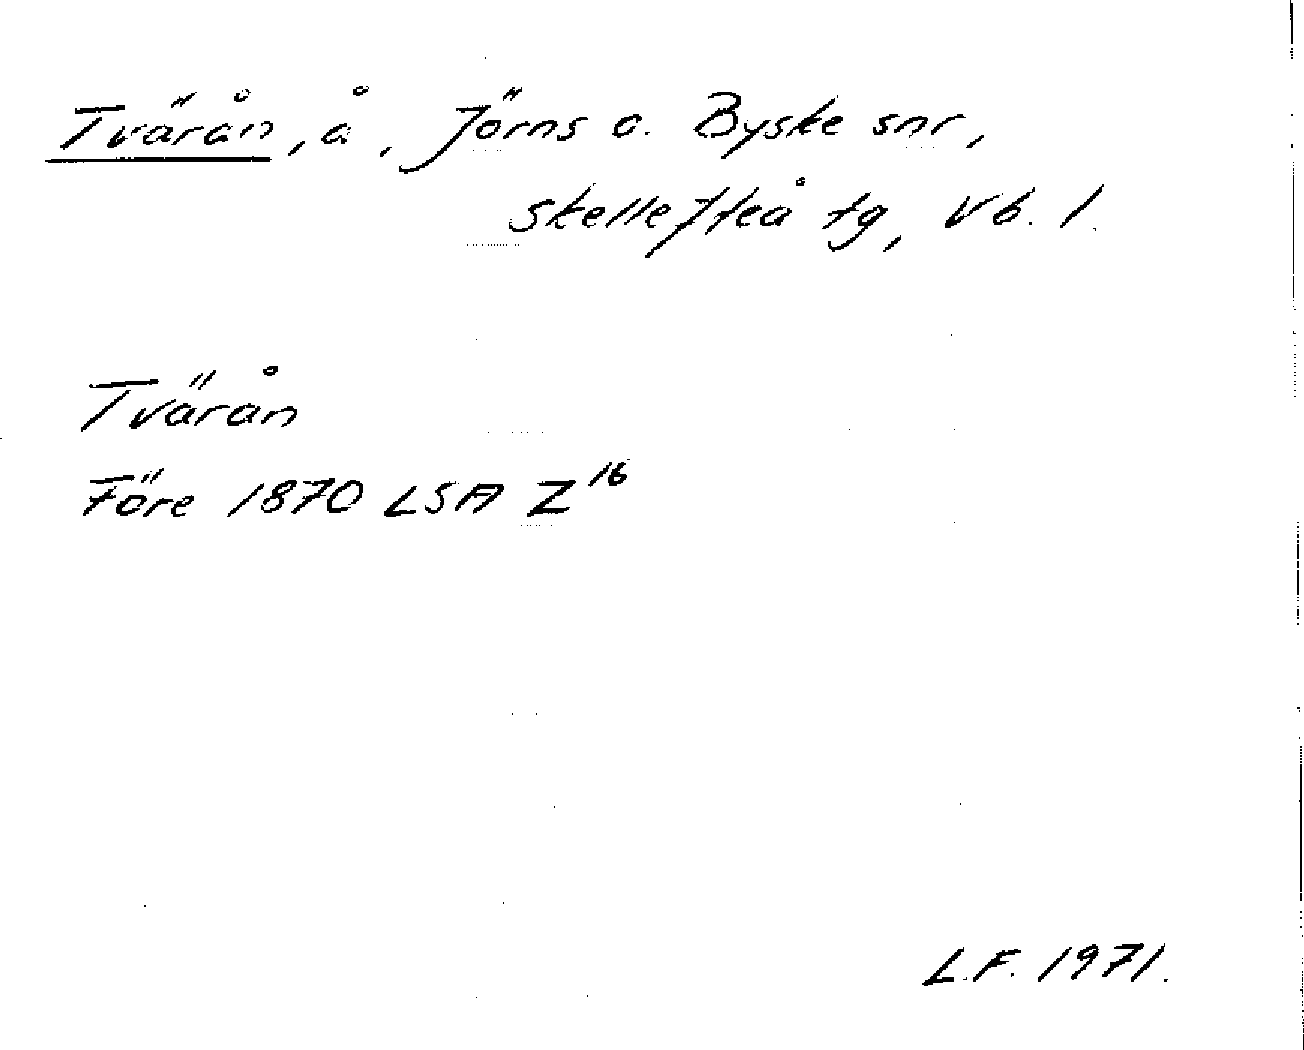 Tvärån, å, Jörns o. Byske snr,
Skellefteå tg, Vb. l.
Tvärån
Före 1870 LSA Z16
L.F. 1971.